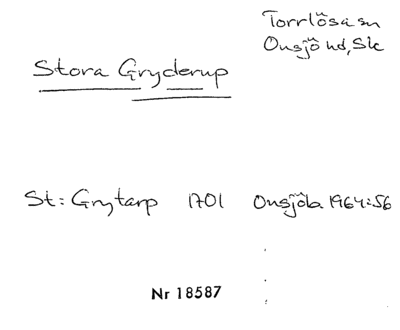 Torrlösa sn
Onsjö hd, Sk
Stora Gryderup
St: Grytarp 1701 Onsjöb. 1964:56
Nr 18587